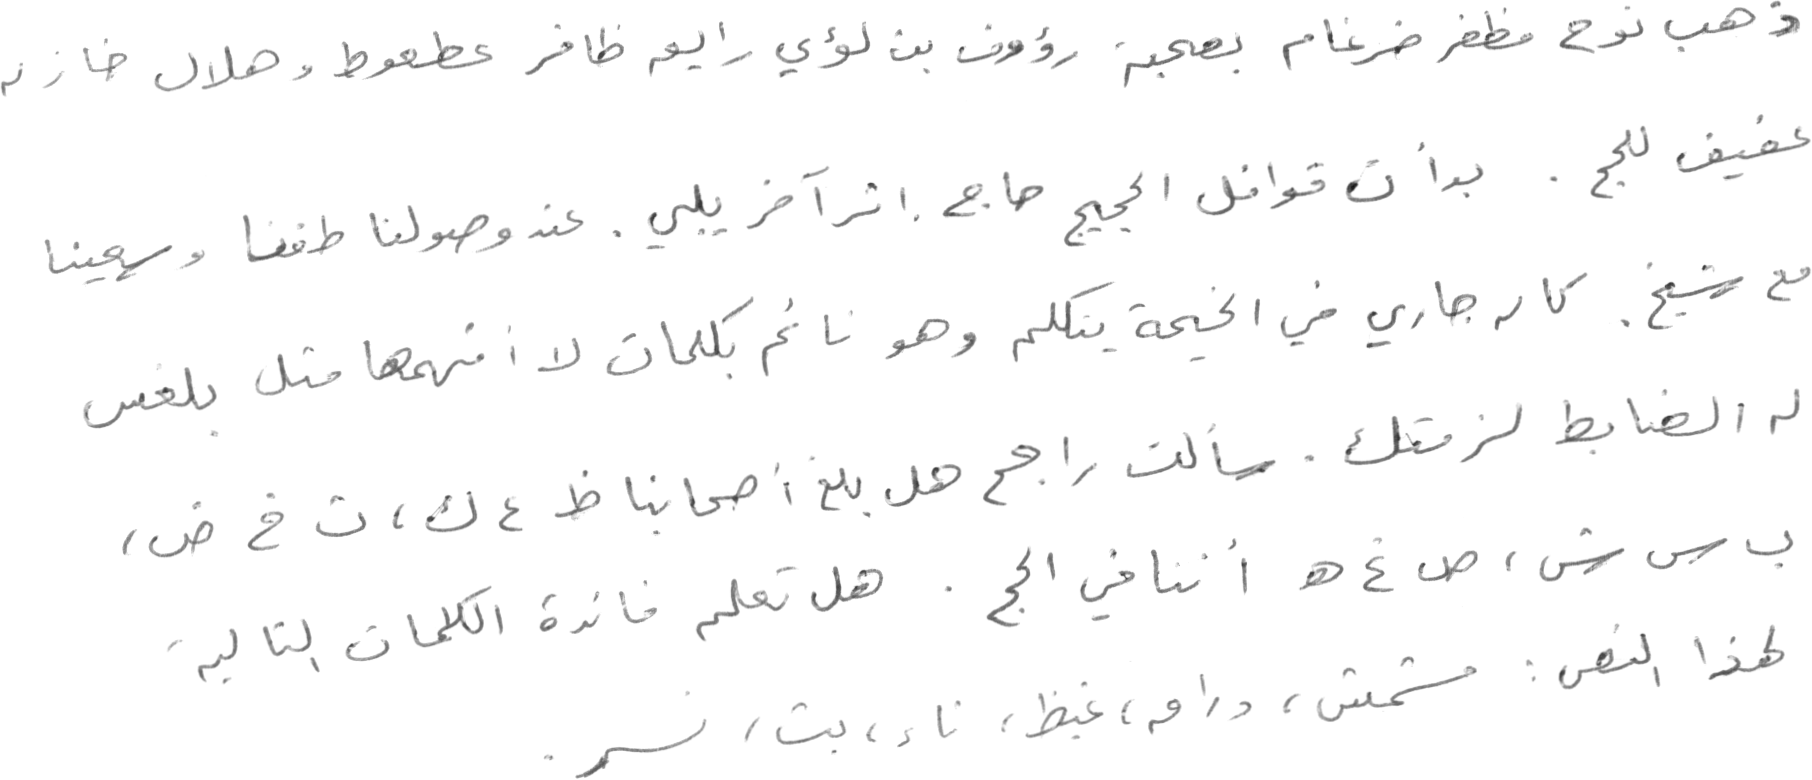 ذهب نوح مظفر ضرغام بصحبة رؤوف بن لؤي رايق ظافر عطعوط و هلال خازن
عفيف للحج . بدأت قوافل الحجيج حاج إثر آخر يلبي . عند وصولنا طفنا وسعينا
مع شيخ . كان جاري في الخيمة يتكلم وهو نائم بكلمات لا أفهمها مثل بلغس
له الضابط لزمتك . سألت راجح هل بلغ أصحابنا ظ ع ك ، ث خ ض ،
ب س ش ، ص غ ه أننا في الحج . هل تعلم فائدة الكلمات التالية
لهذا النص : مشمش ، دراق ، غيظ ، ناء ، بث ، نسر .